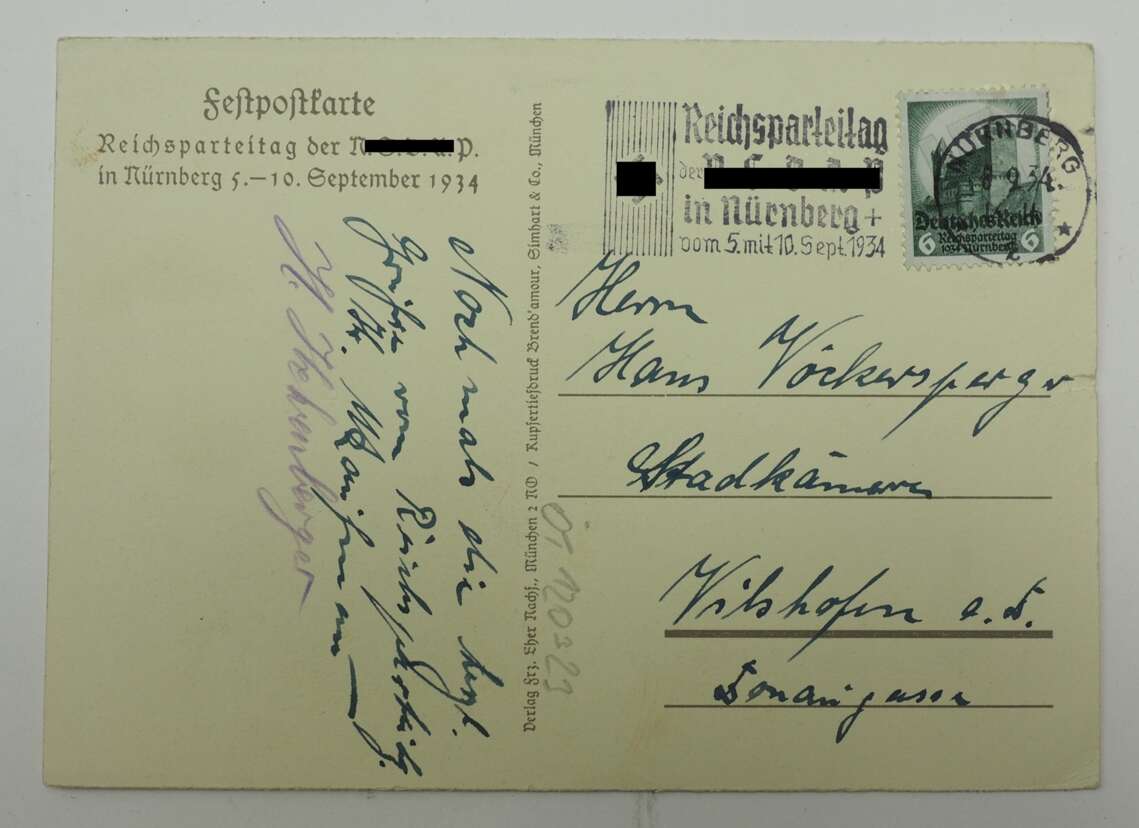 Festpostkarte
Reichsparteitag der N.S.D.A.P.
in Nürnberg 5.–10. September 1934
Reichsparteitag
der N S D A P
in Nürnberg +
vom 5. mit 10. Sept. 1934
NÜRNBERG
9.34
2
Deutsches Reich
6 Reichsparteitag 6
1934 Nürnberg
Verlag Frz. Eher Nachf., München 2 NO / Kupfertiefdruck Brend'amour, Simhart & Co., München
Herrn
Hans Vöckersperger
Stadtkämerer
Vilshofen a. D.
Donaugasse
Nochmals die herzl.
Grüße vom Reichsparteitg.